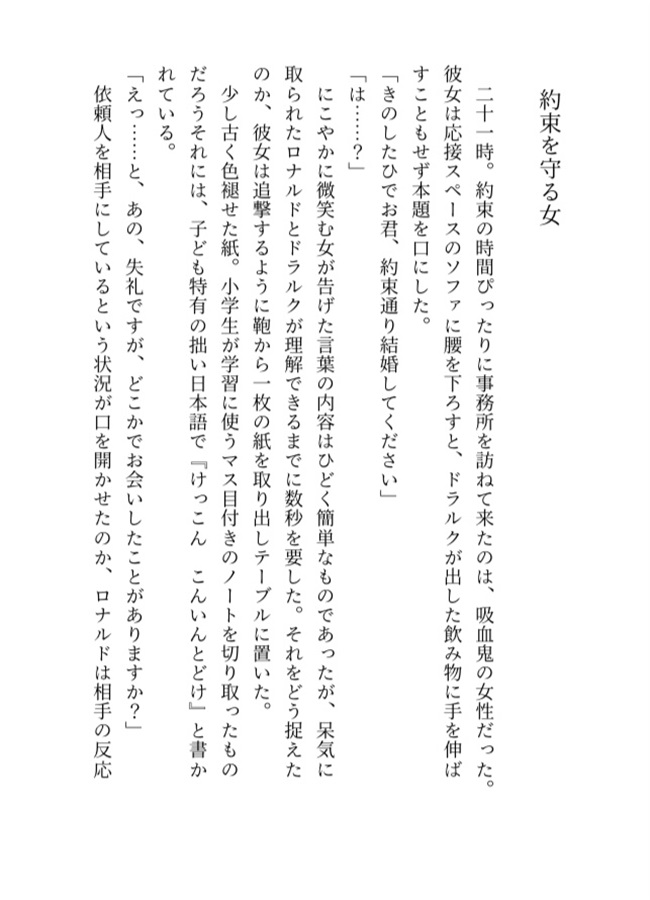 約束を守る女
　二十一時。約束の時間ぴったりに事務所を訪ねて来たのは、吸血鬼の女性だった。
彼女は応接スペースのソファに腰を下ろすと、ドラルクが出した飲み物に手を伸ば
すこともせず本題を口にした。
「きのしたひでお君、約束通り結婚してください」
「は……？」
　にこやかに微笑む女が告げた言葉の内容はひどく簡単なものであったが、呆気に
取られたロナルドとドラルクが理解できるまでに数秒を要した。それをどう捉えた
のか、彼女は追撃するように鞄から一枚の紙を取り出しテーブルに置いた。
　少し古く色褪せた紙。小学生が学習に使うマス目付きのノートを切り取ったもの
だろうそれには、子ども特有の拙い日本語で『けっこん　こんいんとどけ』と書か
れている。
「えっ……と、あの、失礼ですが、どこかでお会いしたことがありますか？」
　依頼人を相手にしているという状況が口を開かせたのか、ロナルドは相手の反応